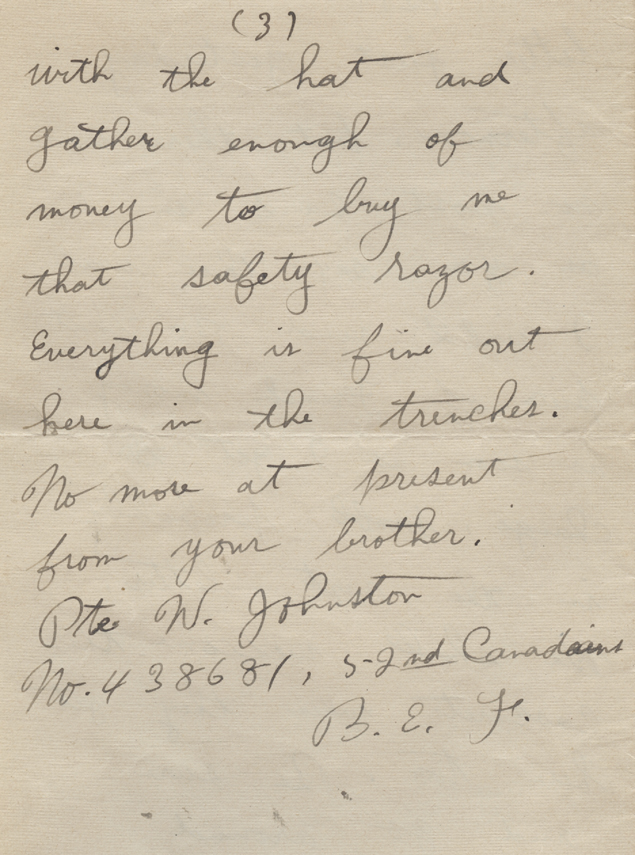 (3)
with the hat and
gather enough of
money to buy me
that safety razor.
Everything is fine out
here in the trenches.
No more at present
from your brother.
Pte W. Johnston
No. 438681, 52nd Canadians
B. E. F.